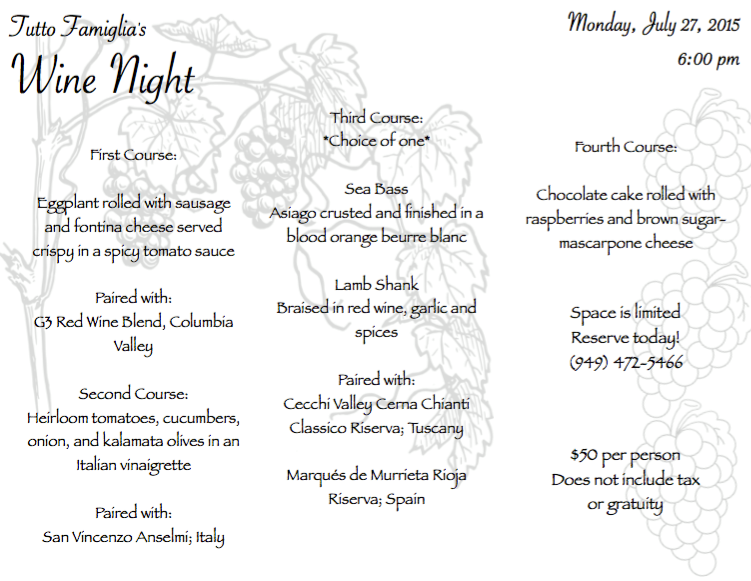 Tutto Famiglia's
Wine Night
Monday, July 27, 2015
6:00 pm
First Course:
Eggplant rolled with sausage
and fontina cheese served
crispy in a spicy tomato sauce
Paired with:
G3 Red Wine Blend, Columbia
Valley
Second Course:
Heirloom tomatoes, cucumbers,
onion, and kalamata olives in an
Italian vinaigrette
Paired with:
San Vincenzo Anselmi; Italy
Third Course:
*Choice of one*
Sea Bass
Asiago crusted and finished in a
blood orange beurre blanc
Lamb Shank
Braised in red wine, garlic and
spices
Paired with:
Cecchi Valley Cerna Chianti
Classico Riserva; Tuscany
Marqués de Murrieta Rioja
Riserva; Spain
Fourth Course:
Chocolate cake rolled with
raspberries and brown sugar-
mascarpone cheese
Space is limited
Reserve today!
(949) 472-5466
$50 per person
Does not include tax
or gratuity